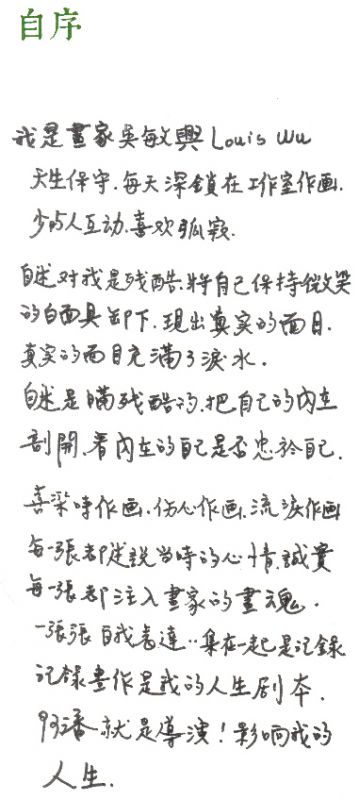 自序
我是畫家吳敏興 Louis Wu
天生保守.每天深鎖在工作室作画.
少与人互动.喜欢孤寂.
自述对我是残酷.将自己保持微笑
的白面具卸下.現出真実的面目.
真実的面目充滿了淚水.
自述是瞞残酷的.把自己的內在
剖開.看內在的自己是否忠於自己.
喜樂時作画.伤心作画.流淚作画
每一張都述說当時的心情.誠實
每一張都注入畫家的畫魂.
一張張自我表達..集在一起是记錄
记錄畫作是我的人生剧本.
就是導演!影响我的
人生.